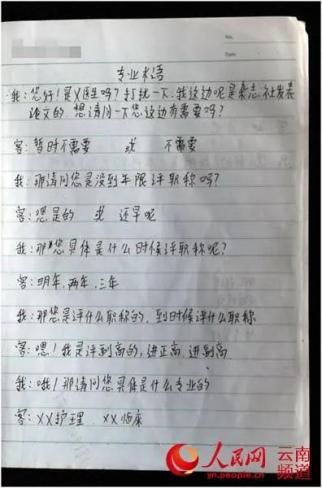 No.
Date
专业术语
我：您好！是X医生吗？打扰一下，我这边呢是杂志社发表
论文的 想请问一下您这边有需要吗？
客：暂时不需要 或 不需要
我：那请问您是没到年限评职称吗？
客：嗯是的 或 还早呢
我：那您具体是什么时候评职称呢？
客：明年，两年，三年
我：那您是评什么职称的，到时候评什么职称
客：嗯！我是评副高的，进正高，进副高
我：哦！那请问您具体是什么专业的
客：XX护理 XX临床
人民网 云南频道
yn.people.cn